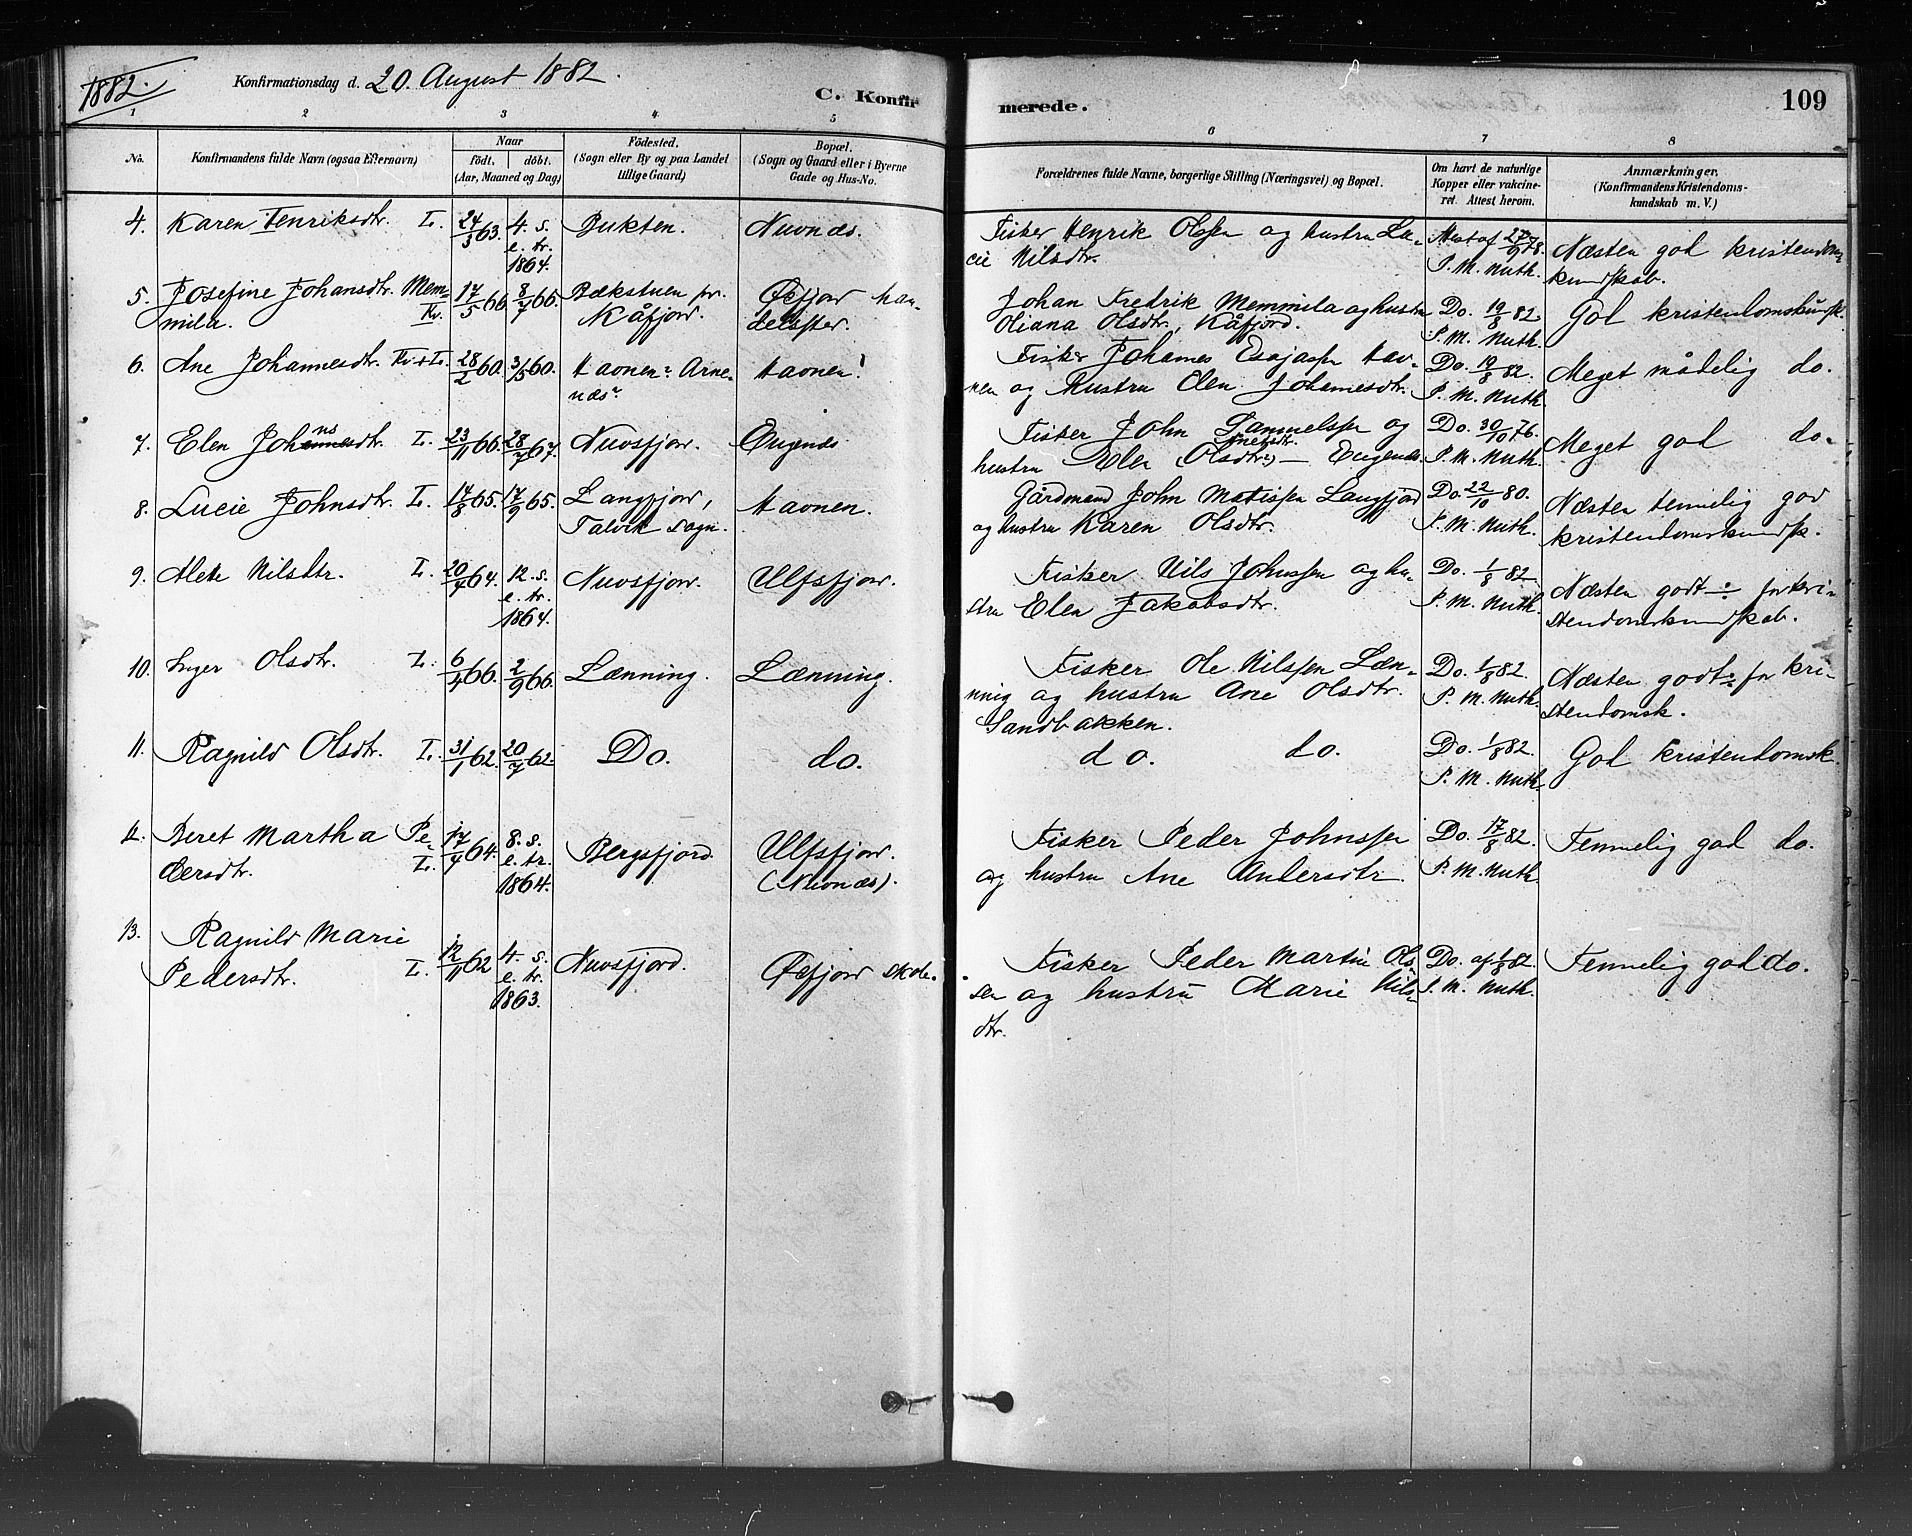 1882.
Konfirmationsdag d. 20. August 1882.
C. Konfirmerede.
109
1 2 3 4 5 6 7 8
No.
Konfirmandens fulde Navn (ogsaa Efternavn)
Naar
födt. döbt.
(Aar, Maaned og Dag)
Födested.
(Sogn eller By og paa Landet
tillige Gaard)
Bopæl.
(Sogn og Gaard eller i Byerne
Gade og Hus-No.
Forældrenes fulde Navne, borgerlige Stilling (Næringsvei) og Bopæl.
Om havt de naturlige
Kopper eller vakcine-
ret. Attest herom.
Anmærkninger.
(Konfirmandens Kristendoms-
kundskab m. V.)
4. Karen Henriksdtr. L. 24/3 63. 4. s. e. tr. 1864. Bukten. Nuvnæs.
Fisker Henrik Olsen og hustru Lu-
cie Nilsdtr.
Attest af 27/9 78.
P. M. Nuth.
Næsten god kristendoms-
kundskab.
5. Josefine Johansdtr. Mem-
mila. Kv. 17/5 66. 8/7 66. Bækstuen pr.
Kåfjord. Øxfjord han-
delsster.
Johan Fredrik Memmila og hustru
Oliana Olsdtr., Kåfjord.
Do. 19/8 82.
P. M. Nuth.
God kristendomskundsk.
6. Ane Johannesdtr. Kv. + L. 28/2 60. 3/5 60. Havnen? Arne-
næs? Havnen!
Fisker Johannes Esajassen Hav-
nen og Hustru Elen Johannesdtr.
Do. 19/8 82.
P. M. Nuth.
Meget mådelig do.
7. Elen Johnsdtr. L. 23/11 66. 28/7 67. Nuvsfjord. Øxgenæs
Fisker John Sammelssen og
hustru Elen (Olsdtr?) — Øxgenæs.
Do. 30/10 76.
P. M. Nuth.
Meget god do.
8. Lucie Johnsdtr. L. 14/8 65. 17/9 65. Langfjord,
Talvik sogn. Havnen.
Gårdmand John Matissen Langfjord
og hustru Karen Olsdtr.
Do. 22/10 80.
P. M. Nuth.
Næsten temmelig god
kristendomskundsk.
9. Alette Nilsdtr. L. 20/4 64. 12. s. e. tr. 1864. Nuvsfjord. Ulfsfjord.
Fisker Nils Johnssen og hu-
stru Elen Jakobsdtr.
Do. 1/8 82.
P. M. Nuth.
Næsten godt ÷ for kri-
stendomskundskab.
10. Inger Olsdtr. L. 6/4 66. 2/9 66. Lænning. Lænning.
Fisker Ole Nilssen Læn-
ning og hustru Ane Olsdtr.
Sandbakken.
Do. 1/8 82.
P. M. Nuth.
Næsten godt ÷ for kri-
stendomsk.
11. Ragnild Olsdtr. L. 31/1 62. 20/7 62. Do. do.
do. do.
Do. 1/8 82.
P. M. Nuth.
God kristendomsk.
12. Beret Martha Pe-
dersdtr. L. 17/4 64. 8. s. e. tr. 1864. Bergsfjord. Ulfsfjord.
(Nuvnæs).
Fisker Peder Johnssen
og hustru Ane Andersdtr.
Do. 17/8 82.
P. M. Nuth.
Temmelig god do.
13. Ragnild Marie
Pedersdtr. L. 12/11 62 4. s. e. tr. 1863. Nuvsfjord. Øxfjord skole.
Fisker Peder Martin Ol-
sen og hustru Marie Nils-
dtr.
Do. af 1/8 82.
P. M. Nuth.
Temmelig god do.